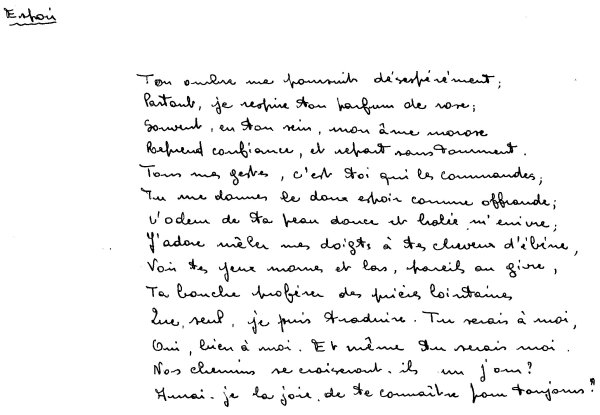 Espoir
Ton ombre me poursuit désespérément;
Partout, je respire ton parfum de rose;
Souvent, en ton sein, mon âme morose
Reprend confiance, et repart sans tourment.
Tous mes gestes, c'est toi qui les commandes;
Tu me donnes le doux espoir comme offrande;
L'odeur de ta peau douce et halée m'enivre;
J'adore mêler mes doigts à tes cheveux d'ébène,
Voir tes yeux mornes et las, pareils au givre,
Ta bouche proférer des prières lointaines
Que, seul, je puis traduire. Tu serais à moi,
Oui, bien à moi. Et même tu serais moi.
Nos chemins se croiseront-ils un jour?
Aurai-je la joie de te connaître pour toujours?